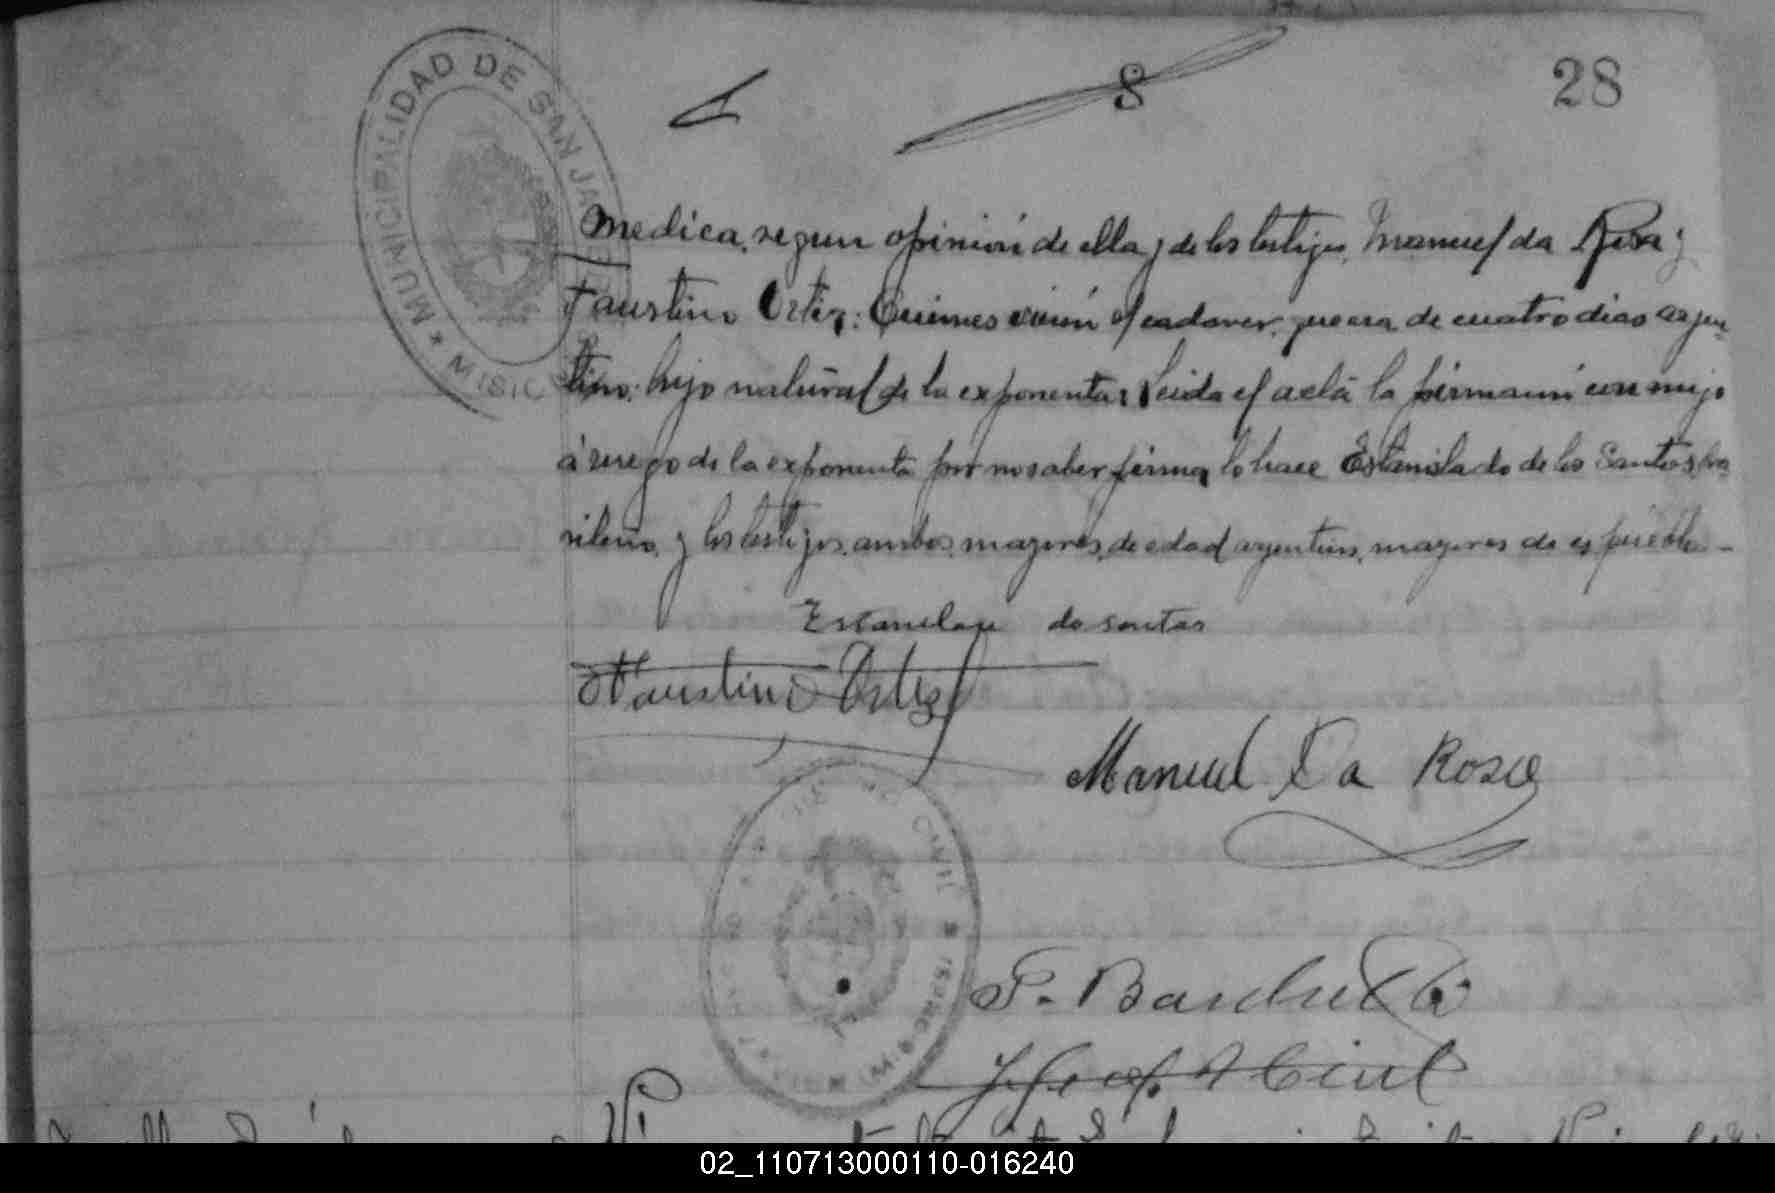 MUNICIPALIDAD DE SAN JA
MISIC
8
28
Medica, segun opinión de ella y de los testigos, Manuel da Rosa y
Faustino Ortiz: Quienes el cadaver, que era de cuatro dias argen-
tino: hijo natural de la exponenta: Leida el acta la firmaron conmigo
á ruego de la exponenta por no saber firmar lo hace Estanislado de los Santos, bra
sileño, y los testigos, ambos mayores de edad argentinos, mayores de
Estanelau do santos
Faustino Ortiz
Manuel Da Rosa
CIVIL
Jefe del R Civil
02_110713000110-016240